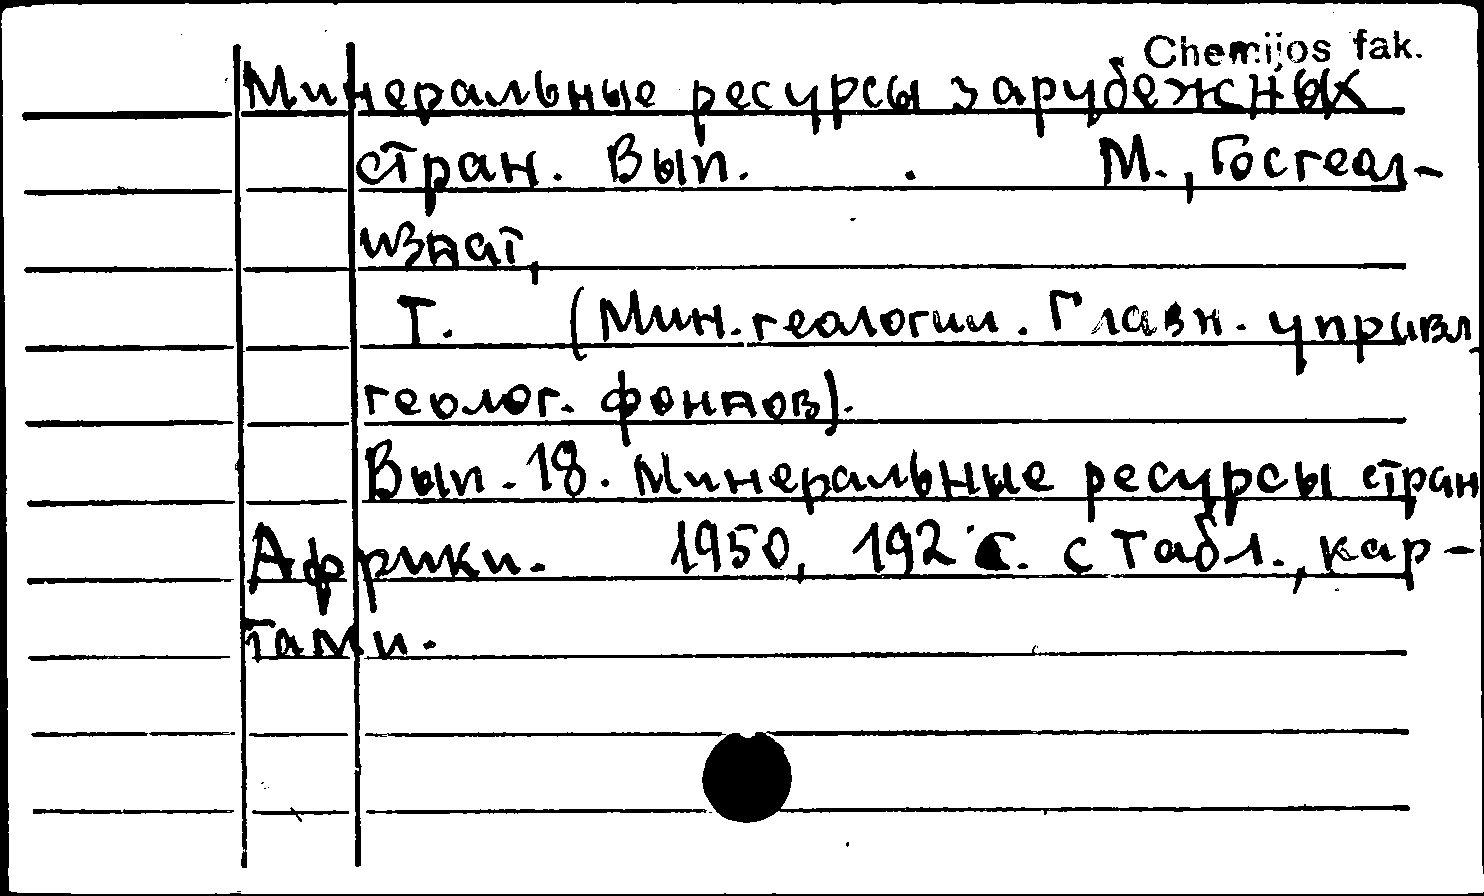 Chemijos fak.
Минеральные ресурсы зарубежных
стран. Вып. . М., Госгеол-
издат,
Т. (Мин. геологии. Главн. управл.
геолог. фондов).
Вып. 18. Минеральные ресурсы стран
Африки. 1950, 192 с. с табл., кар-
тами.